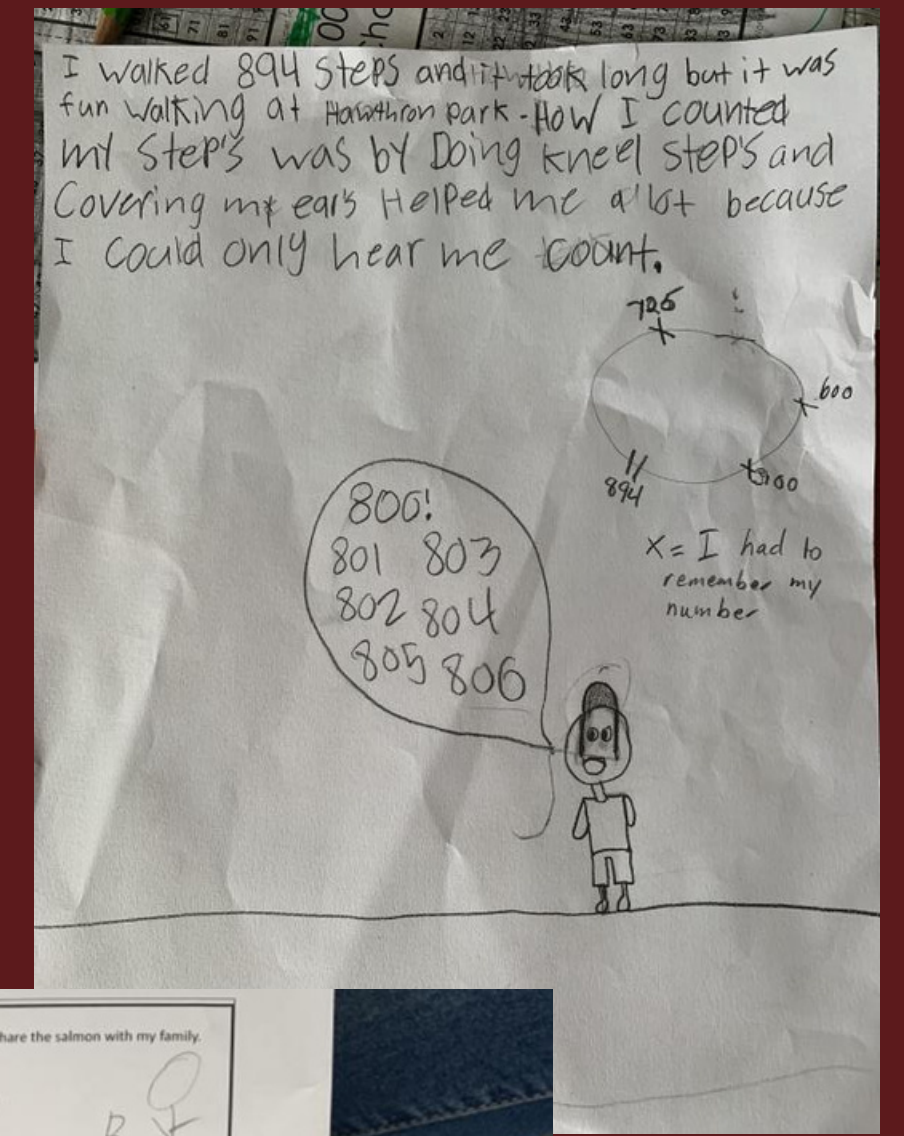 61 71 81 91
00
cho
2 12 22
43 53 63 73
I walked 894 Steps and it took long but it was
fun walking at Hawthron park - How I counted
my Step's was by Doing kneel step's and
Covering my ears Helped me a lot because
I could only hear me count.
725
600
894
x = I had to
remember my
number
800!
801 803
802 804
805 806
hare the salmon with my family.